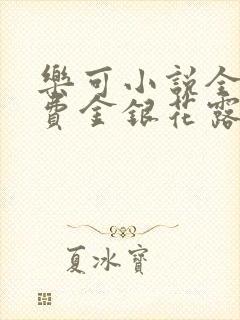 樂可小説全
費金銀花露
夏冰寶